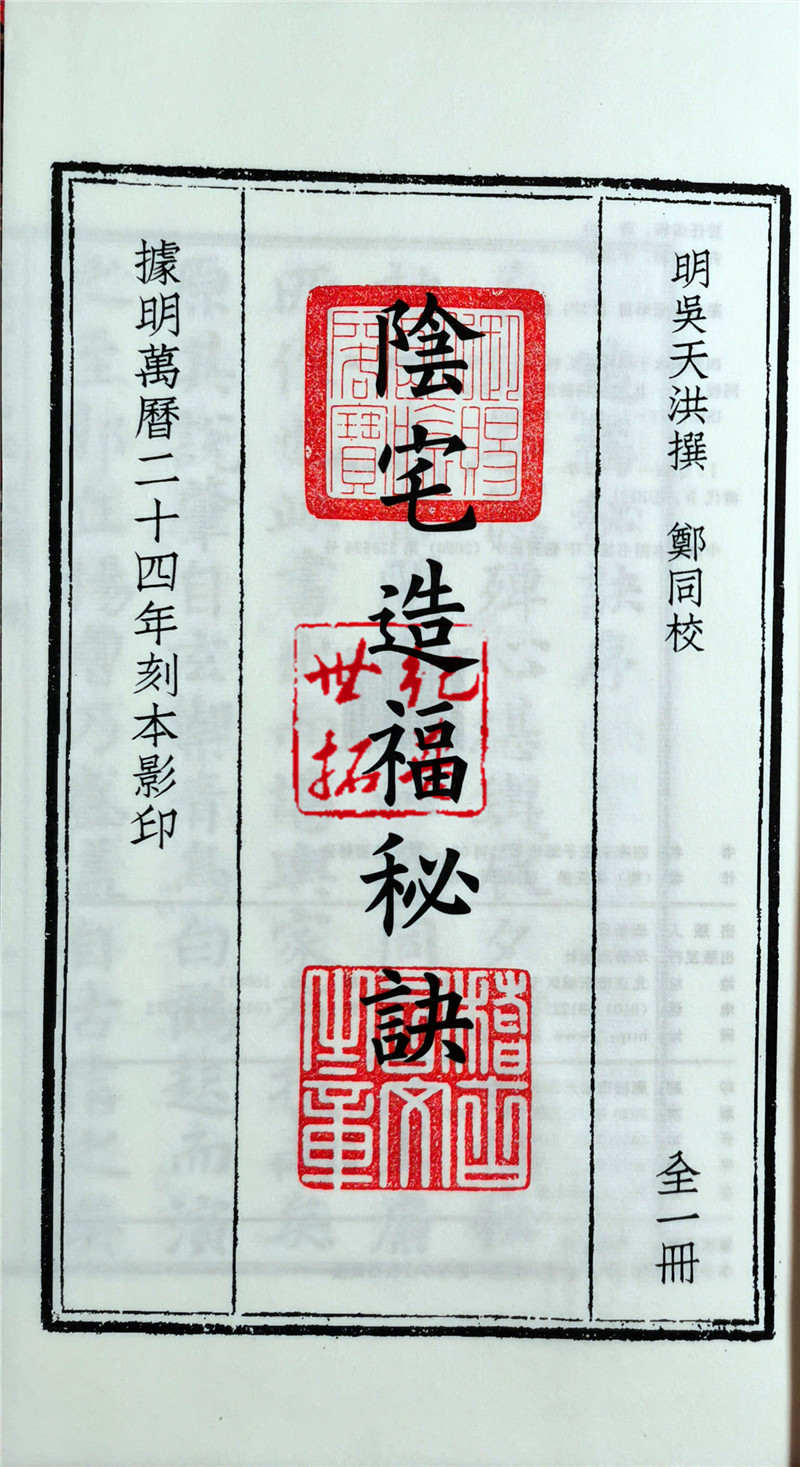 明吳天洪撰　鄭同校
全一冊
陰宅造福秘訣
據明萬曆二十四年刻本影印